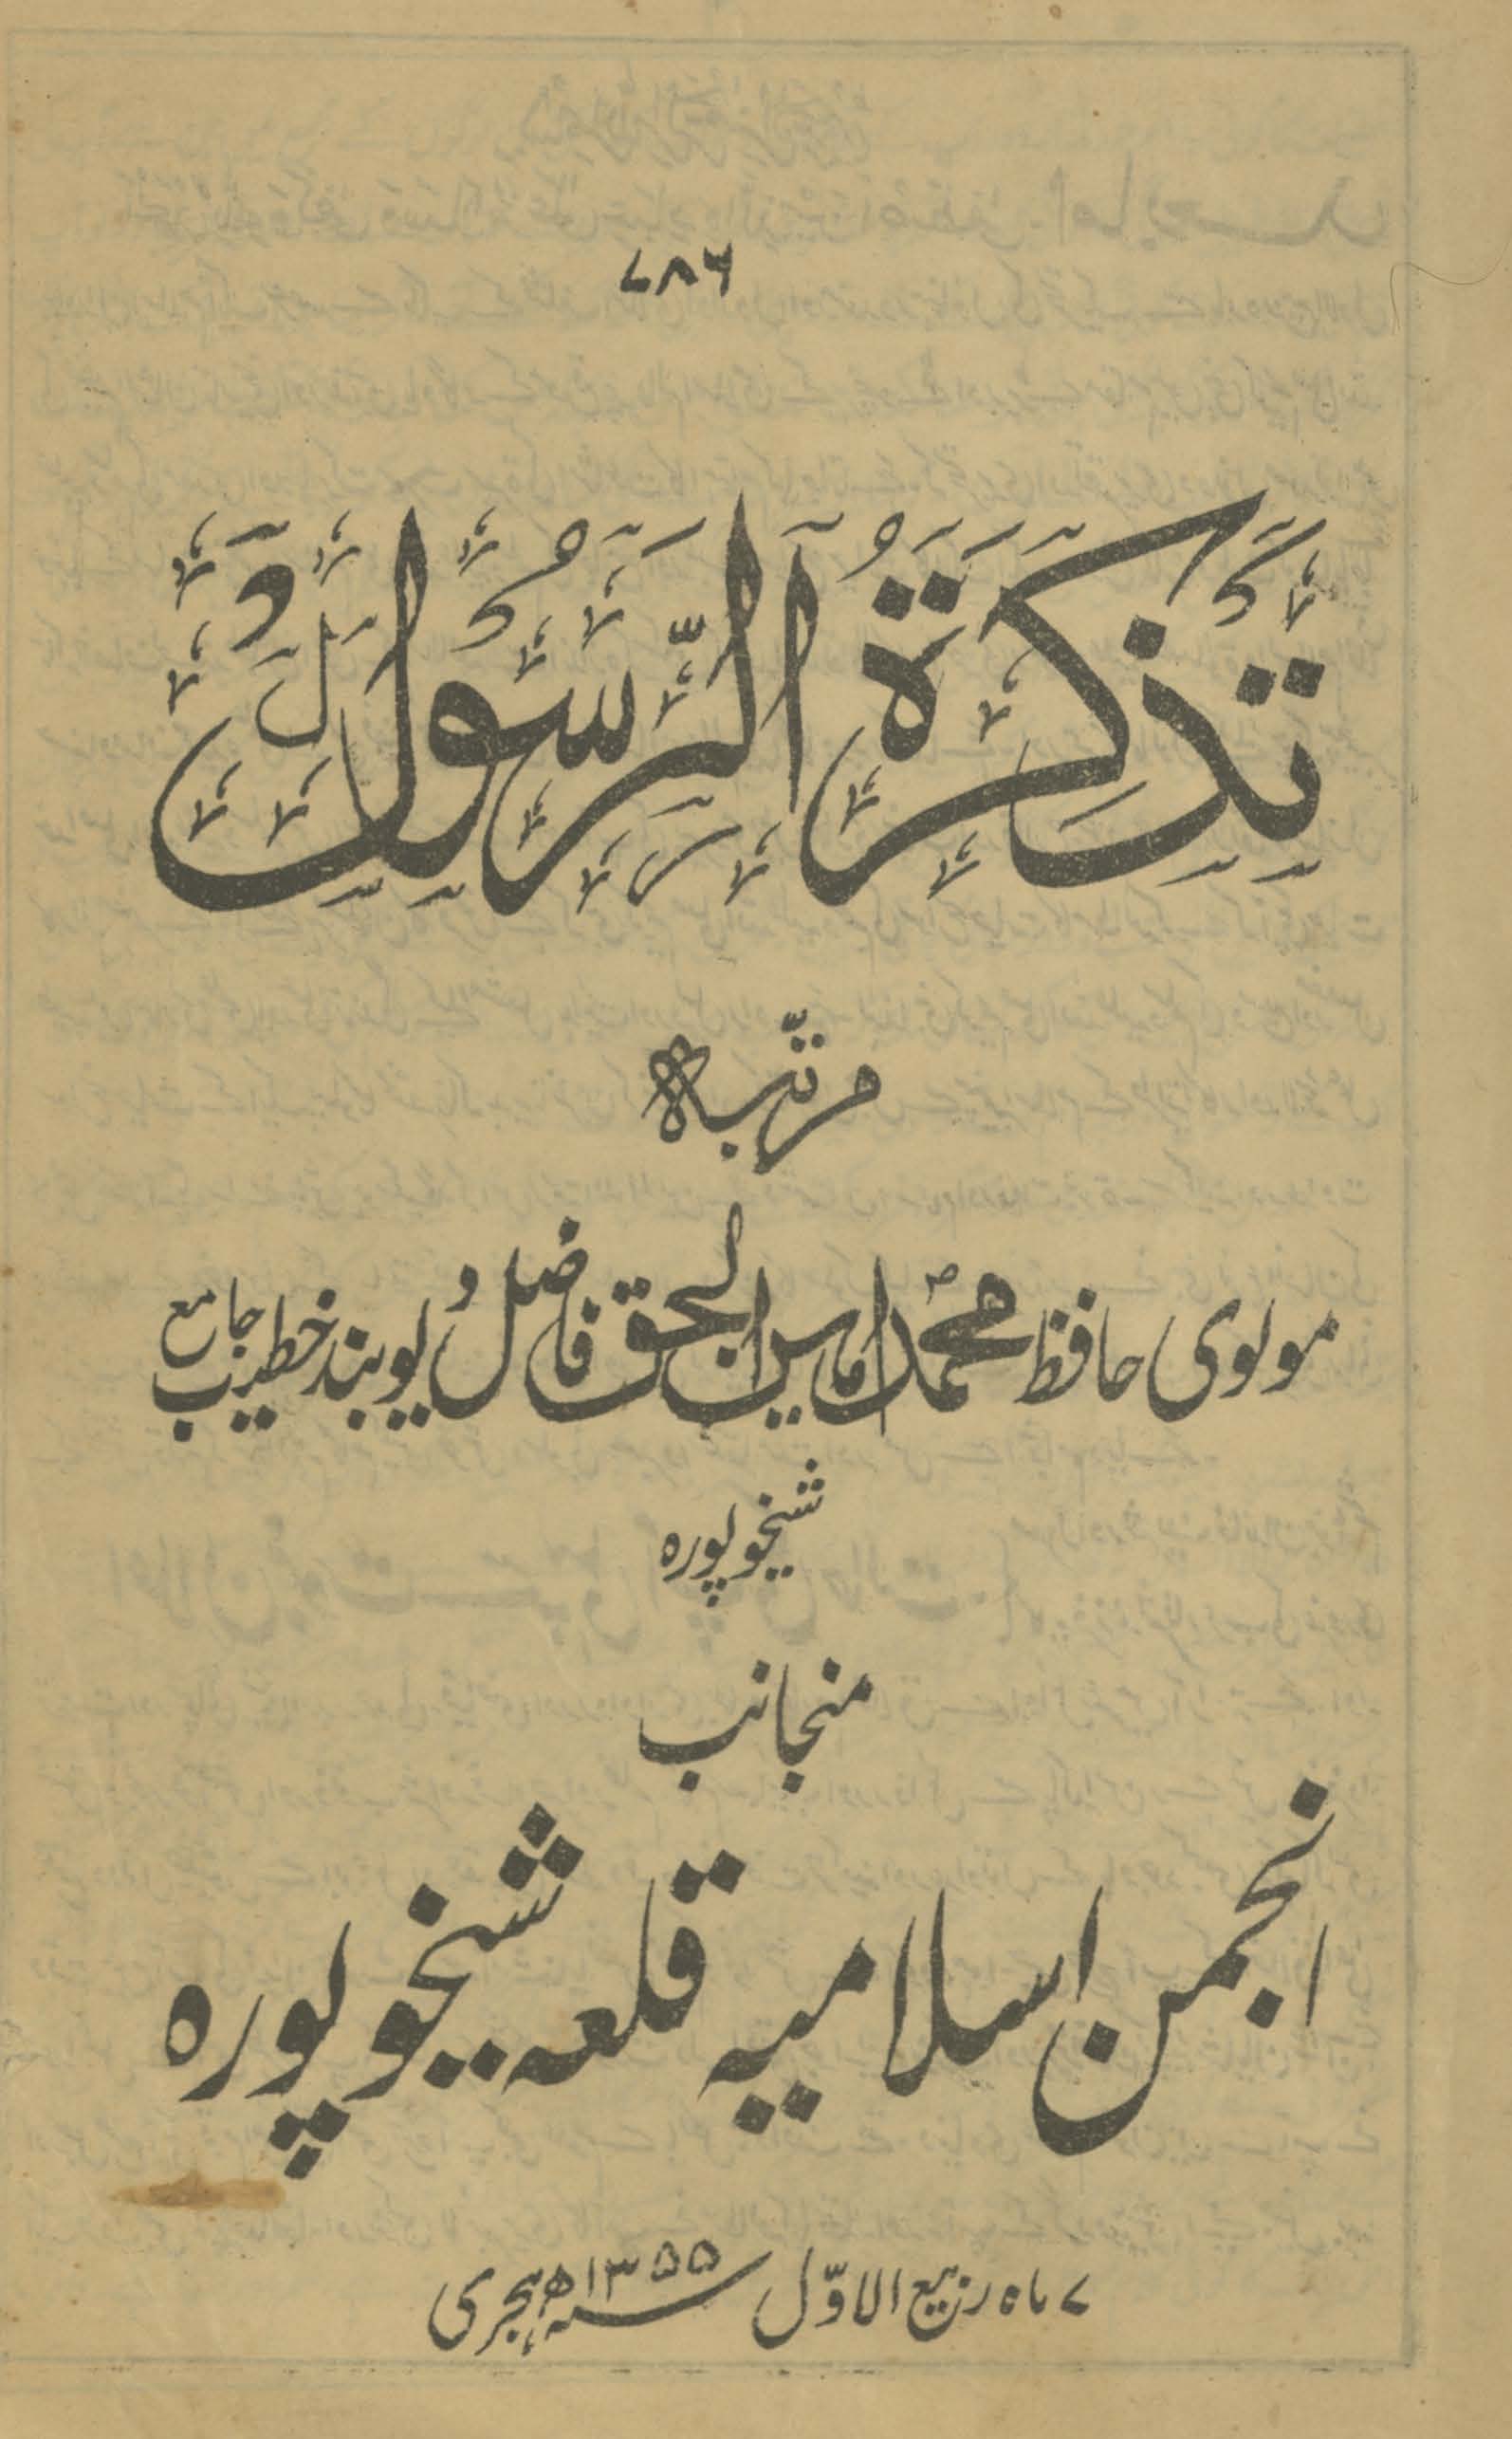 ۷۸۶
تذکرۃ الرسول
مرتبہ
مولوی حافظ محمد امین الحق فاضل دیوبند خطیب جامع
شیخوپورہ
منجانب
انجمن اسلامیہ قلعہ شیخوپورہ
۷ ماہ ربیع الاوّل سنہ ۱۳۵۵ھ ہجری